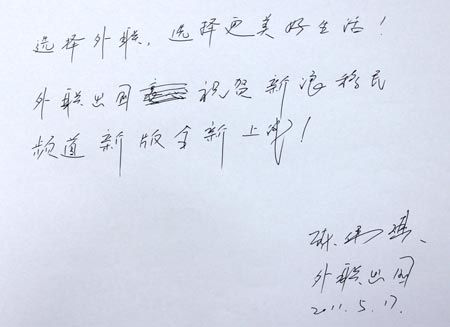 选择外联，选择更美好生活！
外联出国祝贺新浪移民
频道新版全新上线！
外联出国
2011.5.17.